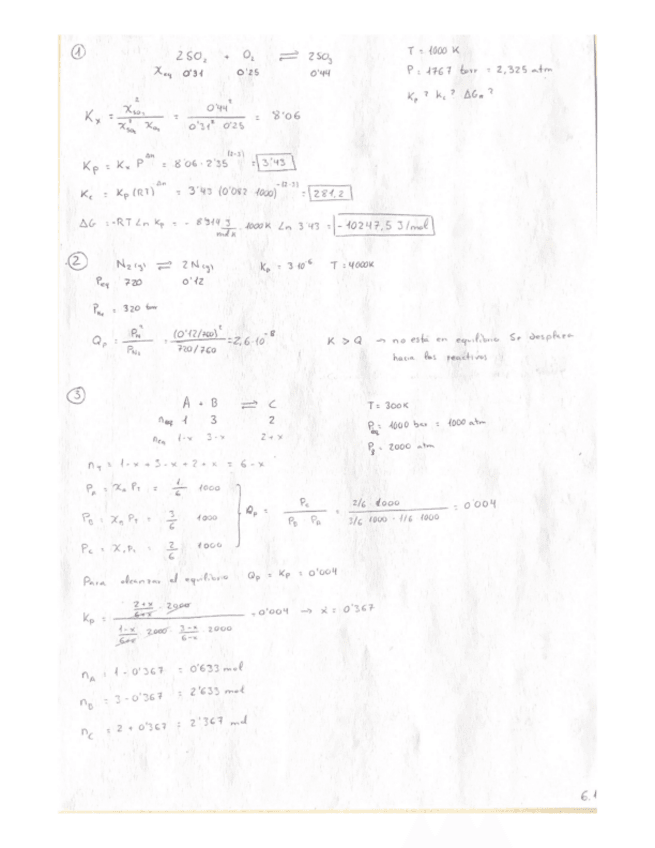 ①
2 SO₂ + O₂ ⇌ 2 SO₃ T = 1000 K
X_eq 0'31 0'25 0'44 P = 1767 torr = 2,325 atm
Kp? Kc? ΔG°?
Kx = X²so₃ / X²so₂ Xo₂ = 0'44² / 0'31² 0'25 = 8'06
Kp = Kx P^Δn = 8'06 · 2'35^(2-3) = 3'43
Kc = Kp (RT)^Δn = 3'43 (0'082 · 1000)^-(2-3) = 281,2
ΔG = -RT Ln Kp = - 8'314 J/mol K · 1000K Ln 3'43 = - 10247,5 J/mol
②
N₂(g) ⇌ 2 N(g) Kp = 3·10⁻⁶ T = 4000K
Peq 720 0'12
= 320 torr
Qp = P²N / PN₂ = (0'12/760)² / 720/760 = 2,6·10⁻⁸ K > Q → no está en equilibrio Se desplaza
hacia los reactivos
③
A + B ⇌ C T = 300K
neq 1 3 2 Peq = 1000 bar = 1000 atm
1-x 3-x 2+x P = 2000 atm
nT = 1-x + 3-x + 2+x = 6-x
PA = XA PT = 1/6 1000
PB = XB PT = 3/6 1000 Qp = Pc / PB PA = 2/6 · 1000 / 3/6 1000 · 1/6 1000 = 0'004
Pc = Xc PT = 2/6 1000
Para alcanzar el equilibrio Qp = Kp = 0'004
Kp = 2+x/6-x · 2000 / 1-x/6-x · 2000 · 3-x/6-x · 2000 = 0'004 ⇒ x = 0'367
nA = 1 - 0'367 = 0'633 mol
nB = 3 - 0'367 = 2'633 mol
nC = 2 + 0'367 = 2'367 mol
6.1